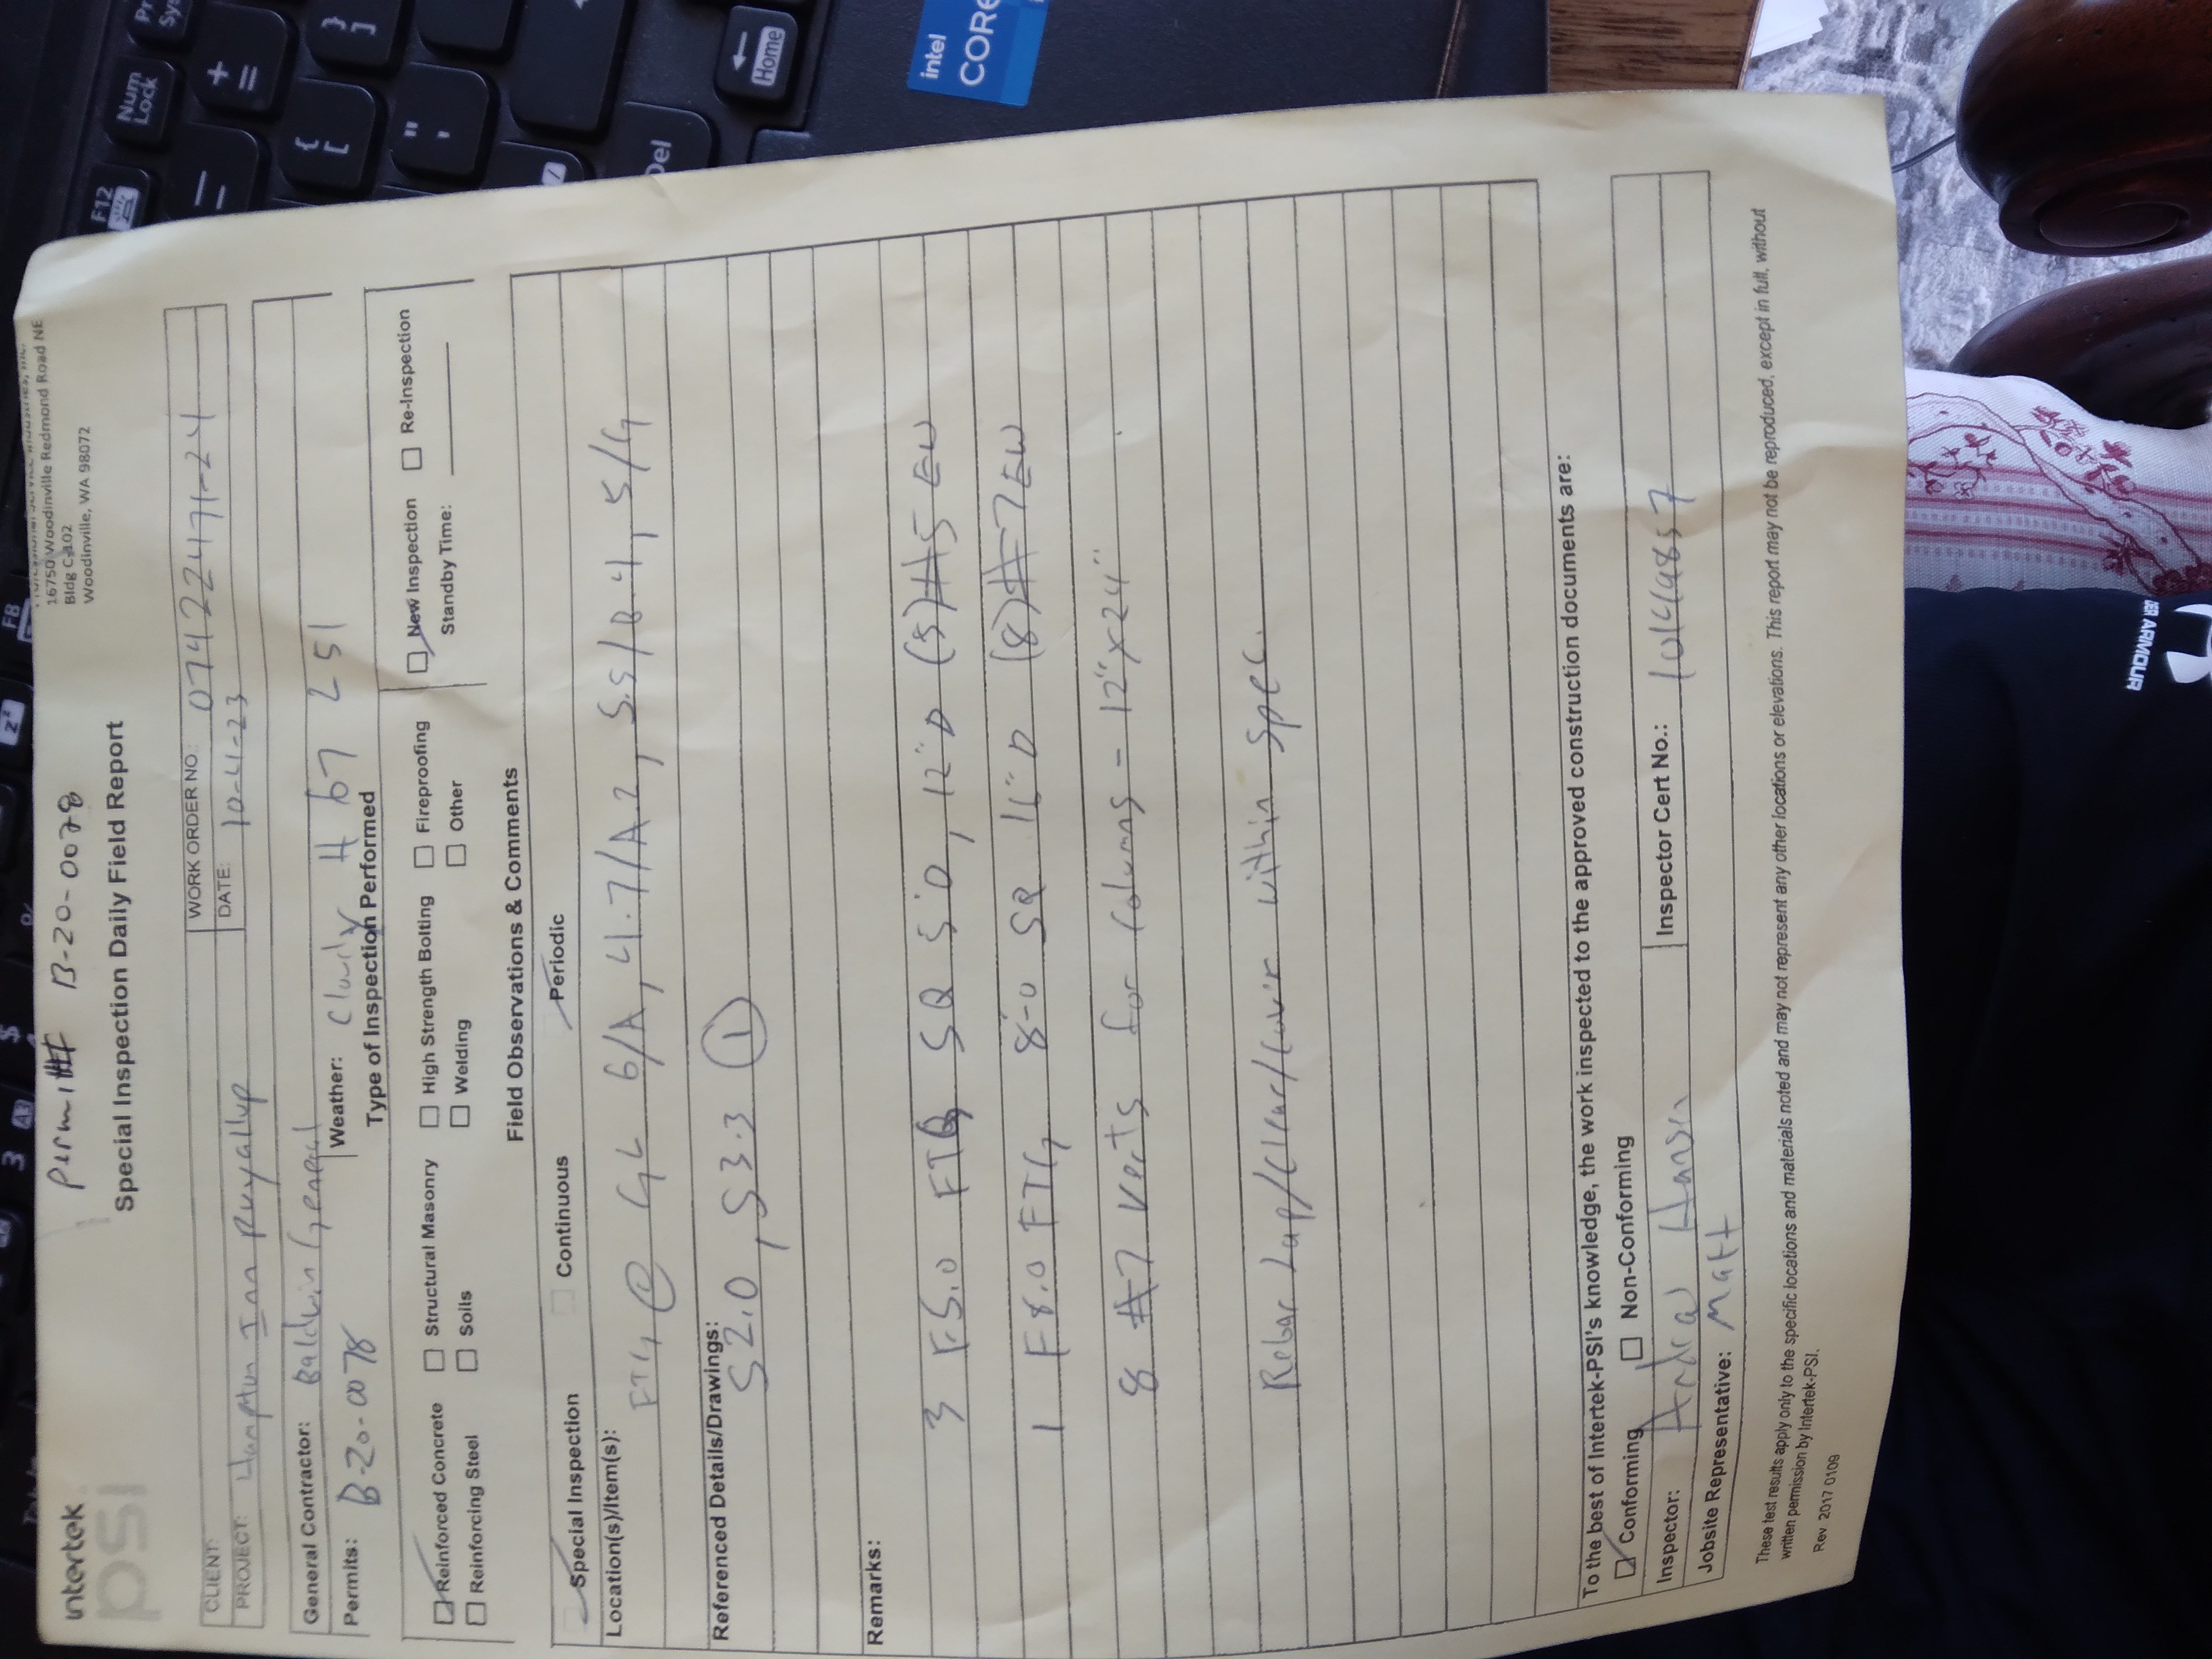 Permit# B-20-0078
intertek
psi
Special Inspection Daily Field Report
16750 Woodinville Redmond Road NE
Bldg C-102
Woodinville, WA 98072
CLIENT:
WORK ORDER NO.: 07422471-24
PROJECT: Hampton Inn Puyallup
DATE: 10-4-23
General Contractor: Baldwin General
Permits: B-20-0078
Weather: Cloudy H 67 L 51
Type of Inspection Performed
Reinforced Concrete
Structural Masonry
High Strength Bolting
Fireproofing
New Inspection
Re-Inspection
Reinforcing Steel
Soils
Welding
Other
Standby Time:
Field Observations & Comments
Special Inspection
Continuous
Periodic
Location(s)/Item(s):
FTG @ GL 6/A, 4.7/A.2, 5.5/B.4, 5/G
Referenced Details/Drawings:
S2.0, S3.3 1
Remarks:
3 F5.0 FTG SQ 5'0, 12" D (5) #5 EW
1 F8.0 FTG, 8'-0 SQ 16" D (8) #7 EW
8 #7 Verts for Columns - 12" x 24"
Rebar Lap/Clear/Cover within Spec.
To the best of Intertek-PSI's knowledge, the work inspected to the approved construction documents are:
Conforming
Non-Conforming
Inspector:
Inspector Cert No.:
Jobsite Representative: Matt
These test results apply only to the specific locations and materials noted and may not represent any other locations or elevations. This report may not be reproduced, except in full, without
written permission by Intertek-PSI.
Rev. 2017 0109
F12
Num
Lock
F8
Home
Del
intel
CORE